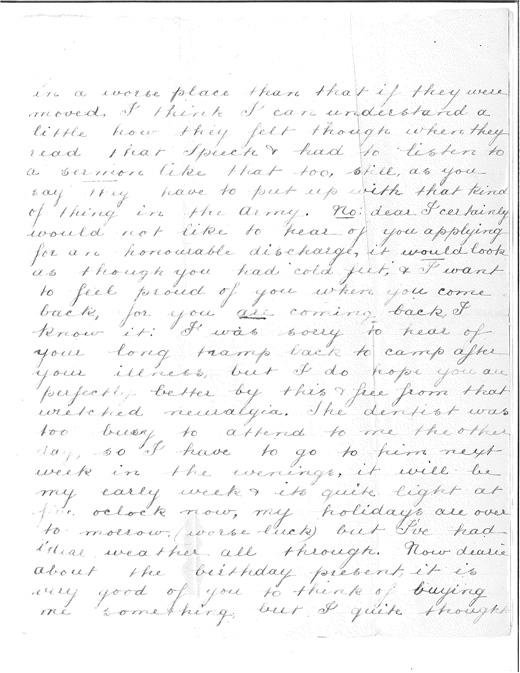 in a worse place than that if they were
moved. I think I can understand a
little how they felt though when they
read that Speech & had to listen to
a sermon like that too, still, as you
say they have to put up with that kind
of thing in the Army. No: dear I certainly
would not like to hear of you applying
for an honourable discharge, it would look
as though you had cold feet, & I want
to feel proud of you when you come
back, for you are coming back, I
know it: I was sorry to hear of
your long tramp back to camp after
your illness, but I do hope you are
perfectly better by this & free from that
wretched neuralgia. The dentist was
too busy to attend to me the other
day, so I have to go to him next
week in the evenings, it will be
my early week & its quite light at
oclock now, my holidays are over
to morrow, (worse luck) but I've had
ideal weather all through. Now dearie
about the birthday present, it is
very good of you to think of buying
me something, but I quite thought